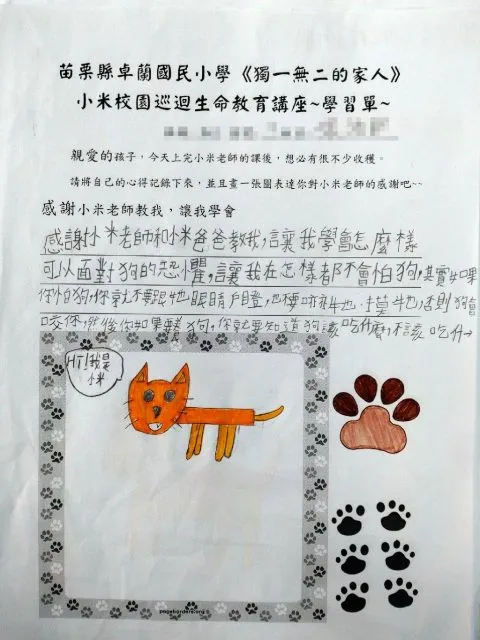 苗栗縣卓蘭國民小學《獨一無二的家人》
小米校園巡迴生命教育講座~學習單~
親愛的孩子，今天上完小米老師的課後，想必有很不少收穫。
請將自己的心得記錄下來，並且畫一張圖表達你對小米老師的感謝吧~~
感謝小米老師教我，讓我學會
感謝小米老師和小米爸爸教我，讓我學會怎麼樣
可以面對狗的恐懼，讓我在怎樣都不會怕狗，其實如果
你怕狗，你就不要跟牠眼睛瞪，也不要牠摸牠，否則狗會
咬你，然後你如果養狗，你就要知道狗該吃什麼，不該吃什→
Hi！我是
小米
pageborders.org